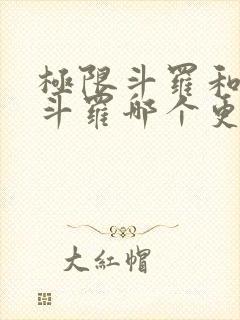 極限斗羅和
斗羅哪个更
大紅帽